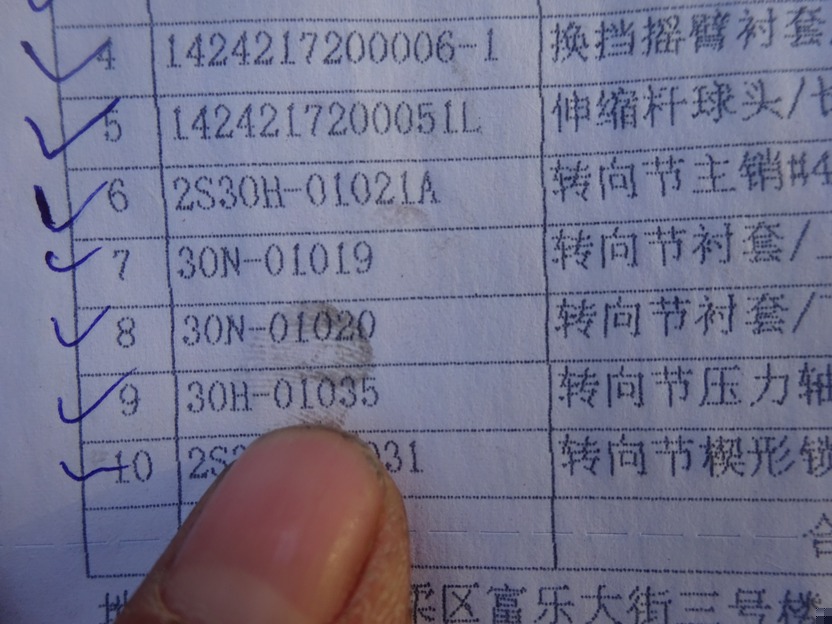 4 1424217200006-1 换挡摇臂衬套
5 1424217200051L 伸缩杆球头/
6 2S30H-01021A 转向节主销#4
7 30N-01019 转向节衬套/
8 30N-01020 转向节衬套/
9 30H-01035 转向节压力轴
10 2S 031 转向节楔形锁
合
地 区富乐大街三号楼